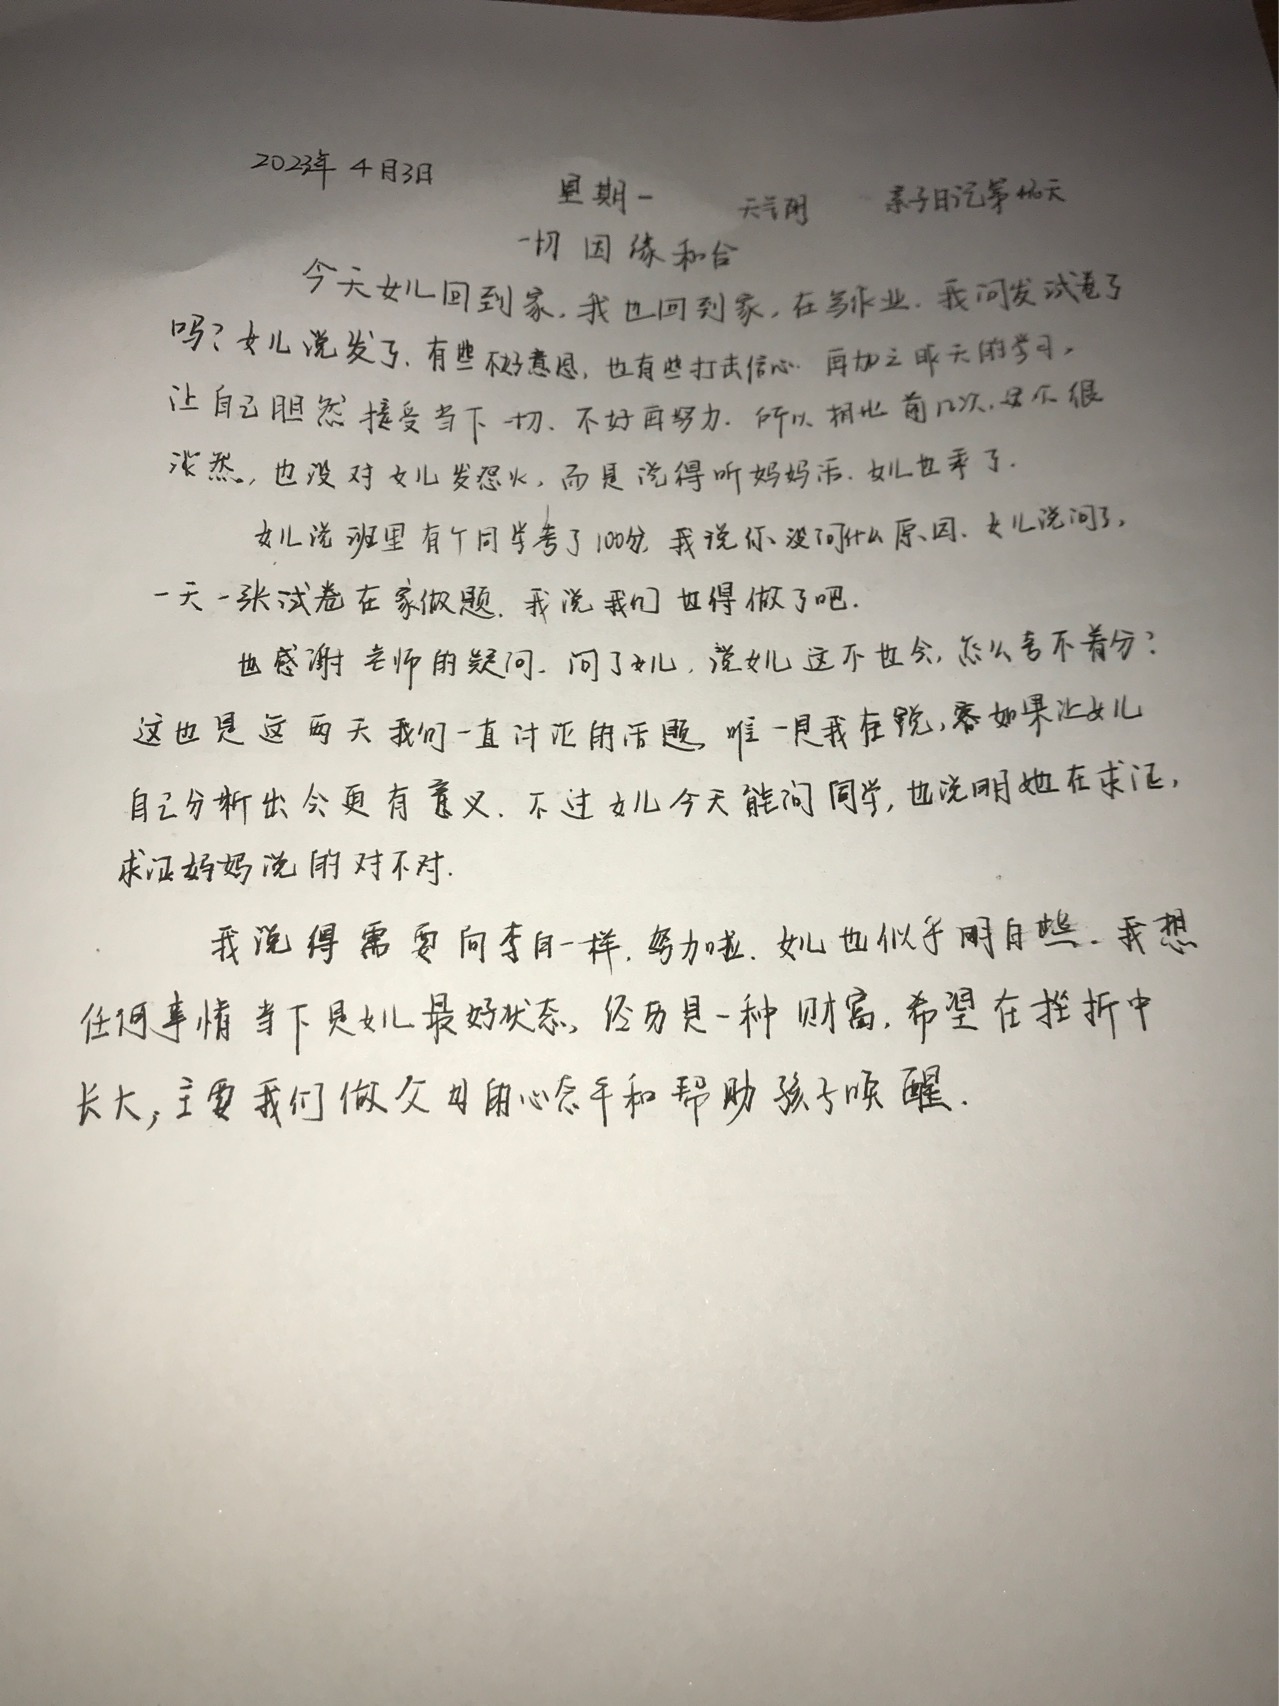 2023年 4月3日 星期一 天气阴 亲子日记第 天
一切因缘和合
今天女儿回到家,我也回到家,在写作业.我问发试卷了
吗?女儿说发了,有些不好意思,也有些打击信心.再加之昨天的学习,
让自己坦然接受当下一切.不好再努力.所以相比前几次, 很
淡然,也没对女儿发怒火,而是说得听妈妈话.女儿也乖了.
女儿说班里有个同学考了100分,我说你没问什么原因.女儿说问了,
一天一张试卷在家做题.我说我们也得做了吧.
也感谢老师的疑问.问了女儿,说女儿这不也会,怎么考不着分?
这也是这两天我们一直讨论的话题,唯一是我在说, 如果让女儿
自己分析出会更有意义.不过女儿今天能问同学,也说明她在求证,
求证妈妈说的对不对.
我说得需要向李白一样.努力啦.女儿也似乎明白些.我想
任何事情当下是女儿最好状态,经历是一种财富,希望在挫折中
长大,主要我们做父母的心态平和帮助孩子唤醒.